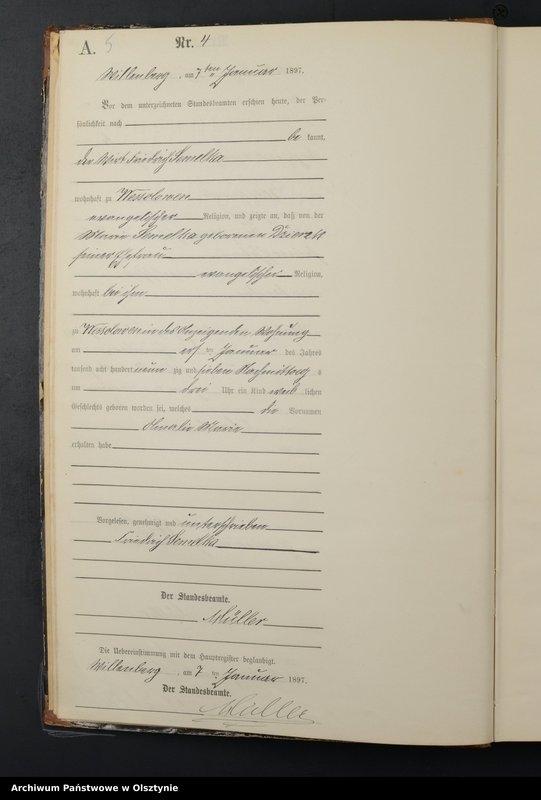 A. 5 Nr. 4
Willenberg, am 7ten Januar 1897.
Vor dem unterzeichneten Standesbeamten erschien heute, der Per-
sönlichkeit nach
be kannt,
der Wirt Friedrich Semelka
wohnhaft zu Wessolowen
evangelischer Religion, und zeigte an, daß von der
Marie Semelka geborenen
seiner Ehefrau
evangelischer Religion,
wohnhaft bei ihm
zu Wessolowen in des Anzeigenden Wohnung
am ersten Januar des Jahres
tausend acht hundert neun zig und sieben Nachmittag s
um drei Uhr ein Kind weib lichen
Geschlechts geboren worden sei, welches die Vornamen
Amalie Marie
erhalten habe
Vorgelesen, genehmigt und unterschrieben
Friedrich Semelka
Der Standesbeamte.
Müller
Die Uebereinstimmung mit dem Hauptregister beglaubigt.
Willenberg, am 7 ten Januar 1897.
Der Standesbeamte.
Müller
Archiwum Państwowe w Olsztynie